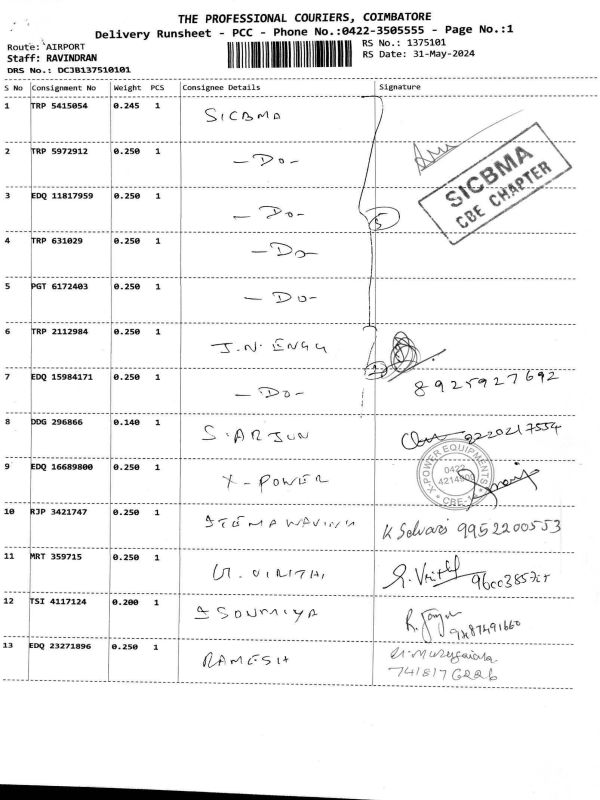 THE PROFESSIONAL COURIERS, COIMBATORE
Delivery Runsheet - PCC - Phone No.:0422-3505555 - Page No.:1
Route: AIRPORT
RS No.: 1375101
Staff: RAVINDRAN
RS Date: 31-May-2024
DRS No.: DCJB137510101
S No Consignment No Weight PCS Consignee Details Signature
1 TRP 5415054 0.245 1 SICBMA
2 TRP 5972912 0.250 1 -Do-
SICBMA
CBE CHAPTER
3 EDQ 11817959 0.250 1 -Do- 5
4 TRP 631029 0.250 1 -Do-
5 PGT 6172403 0.250 1 -Do-
6 TRP 2112984 0.250 1 J.N. ENGG
7 EDQ 15984171 0.250 1 -Do- 8925927692
8 DDG 296866 0.140 1 S.ARJUN 9220217554
9 EDQ 16689800 0.250 1 X-POWER
X-POWER EQUIPMENTS
0422
CBE
10 RJP 3421747 0.250 1 K Selvari 9952200553
11 MRT 359715 0.250 1
12 TSI 4117124 0.200 1 SOUMIYA
13 EDQ 23271896 0.250 1 RAMESH
7418176226